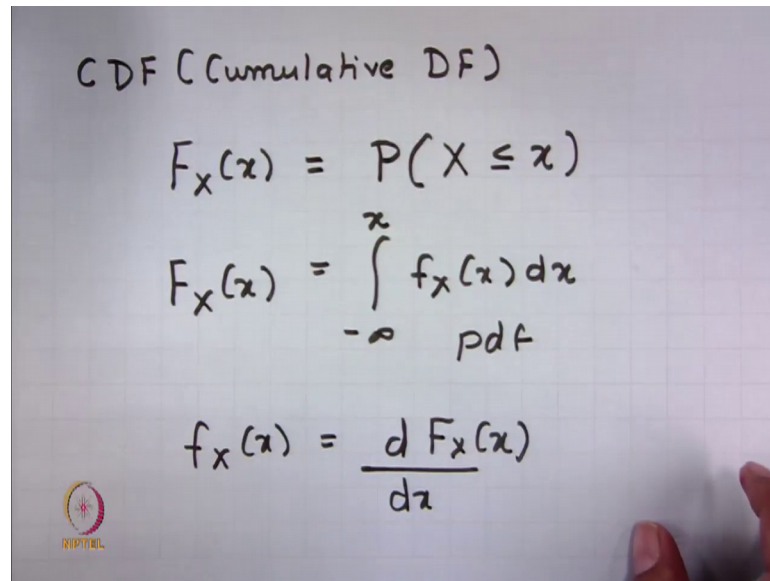 CDF (Cumulative DF)
F_X(x) = P(X ≤ x)
F_X(x) = ∫_{-∞}^{x} f_X(x) dx
pdf
f_X(x) = d F_X(x) / dx
NPTEL